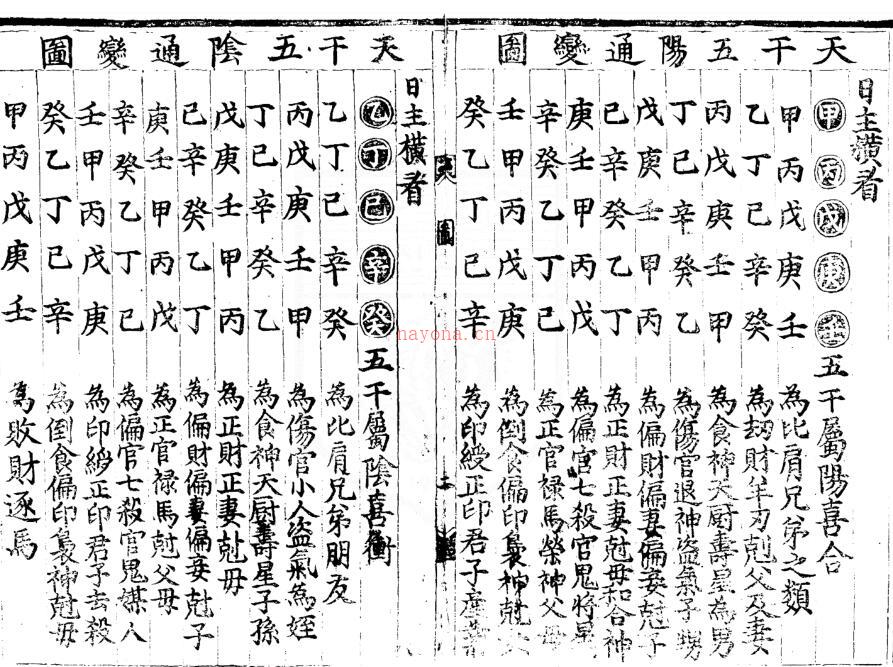 天干五陽通變圖
日主橫看
甲丙戊庚壬五干屬陽喜合
甲丙戊庚壬為比肩兄弟之類
乙丁己辛癸為刼財羊刃尅父及妻
丙戊庚壬甲為食神天厨壽星為男
丁己辛癸乙為傷官退神盜氣子甥
戊庚壬甲丙為偏財偏妻偏妾尅子
己辛癸乙丁為正財正妻尅毋和合神
庚壬甲丙戊為偏官七殺官鬼將星
辛癸乙丁己為正官禄馬榮神父毋
壬甲丙戊庚為倒食偏印梟神尅女
癸乙丁己辛為印綬正印君子産業
圖
天干五陰通變圖
日主橫看
乙丁己辛癸五干屬陰喜衝
乙丁己辛癸為比肩兄弟朋友
丙戊庚壬甲為傷官小人盜氣為姪
丁己辛癸乙為食神天厨壽星子孫
戊庚壬甲丙為正財正妻尅毋
己辛癸乙丁為偏財偏妻偏妾尅子
庚壬甲丙戊為正官禄馬尅父毋
辛癸乙丁己為偏官七殺官鬼媒人
壬甲丙戊庚為印綬正印君子去殺
癸乙丁己辛為倒食偏印梟神尅毋
甲丙戊庚壬為敗財逐馬
nayona.cn